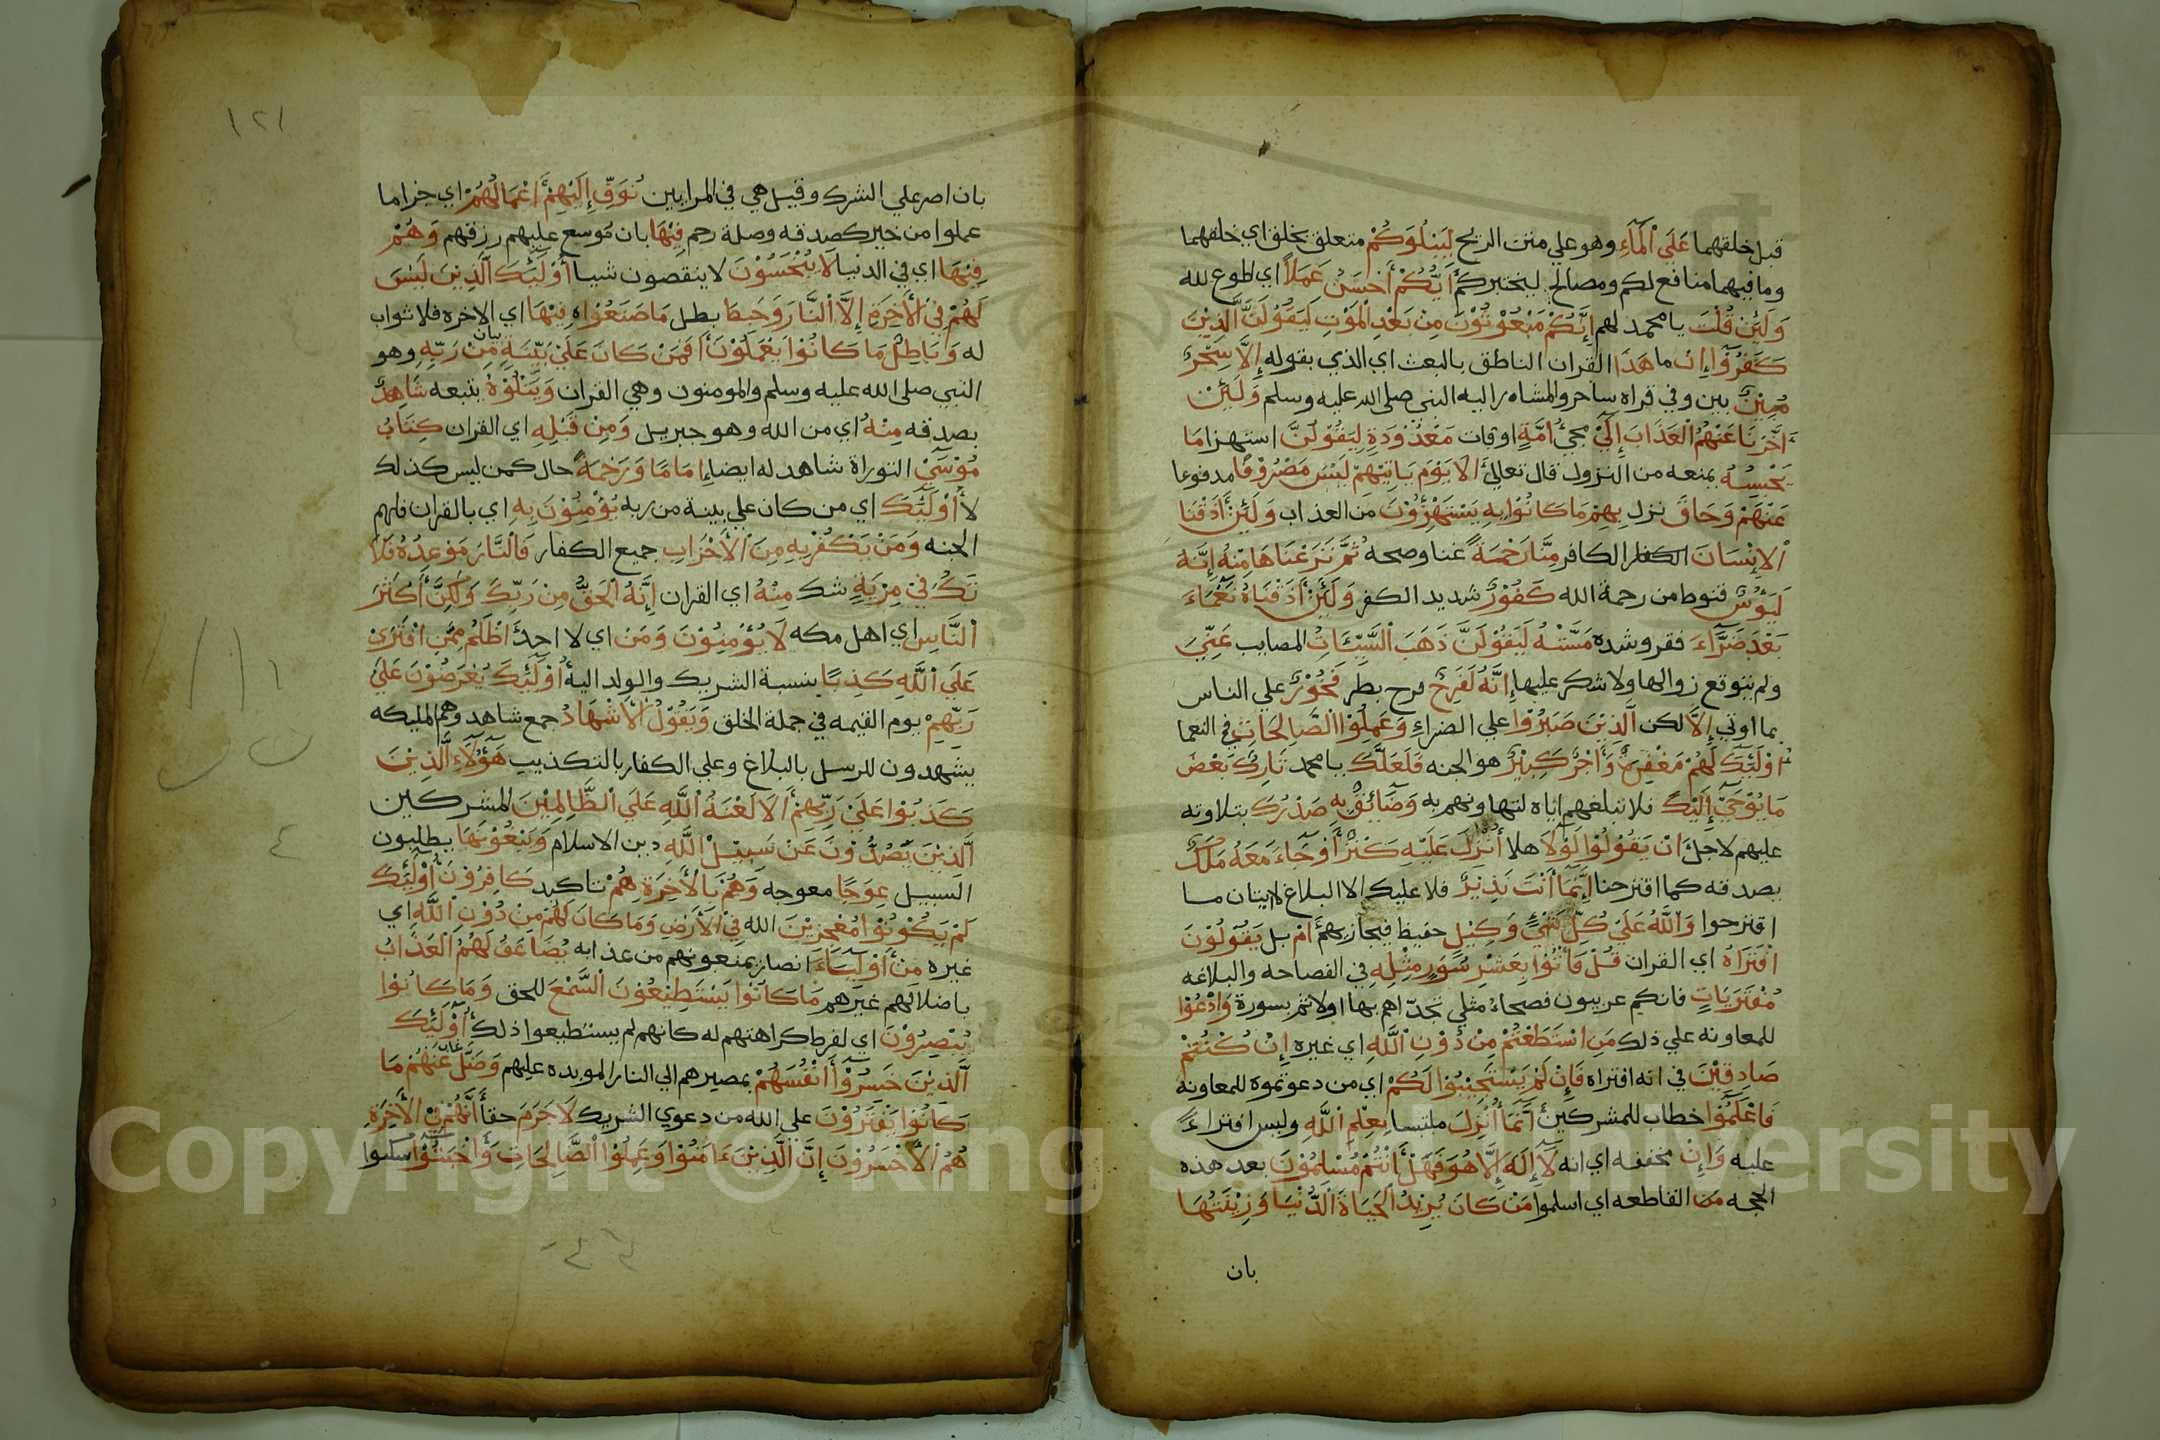 قبل خلقهما عَلَي اْلمَآءِ وهو علي متن الريح لِيَبْلُوَكُمْ متعلق بخلق اي خلقهما
وما فيهما منافع لكم ومصالح ليختبركم أَيُّكُمْ أَحْسَنُ عَمَلاً اي اطوع لله
وَلَئِن قُلْتَ يا محمد لهم إِنَّكُمْ مَبْعُوْثُوْنَ مِنْ بَعْدِ اْلمَوْتِ لَيَقُوْلَنَّ الَّذِيْنَ
كَفَرُوْآ إِنْ ما هَذَا القران الناطق بالبعث اي الذي بقوله إِلَّا سِحْرٌ
مُبِيْنٌ بين وفي قراه ساحر والمشاه را ليه النبي صلي الله عليه وسلم وَلَئِنْ
أَخَّرْنَا عَنْهُمُ اْلعَذَابَ إِلَيْ مجيء أُمَّةٍ اوقات مَعْدُوْدَةٍ لِيَقُوْلَنَّ استهزا مَا
يَحْبِسُهُ بمنعه من النزول قال تعالي أَلَا يَوْمَ يَاتِيْهِمْ لَيْسَ مَصْرُوْفًا مدفوعا
عَنْهُمْ وَحَاقَ نزل بِهِمْ مَا كَانُوْا بِهِ يَسْتَهْزِؤُوْنَ من العذاب وَلَئِنْ أَذَقْنَا
اْلإِنْسَانَ الكفار الكافر مِنَّا رَحْمَةً غنا وصحه ثُمَّ نَزَعْنَاهَا مِنْهُ إِنَّهُ
لَيَؤُسٌ قنوط من رحمة الله كَفُوْرٌ شديد الكفر وَلَئِنْ أَذَقْنَاهُ نَعْمَآءَ
بَعْدَ ضَرَّآءَ فقر وشده مَسَّتْهُ لَيَقُوْلَنَّ ذَهَبَ اْلسَّيِّئَاتُ المصايب عَنِّيَ
ولم يتوقع زوالها ولا شكر عليها إِنَّهُ لَفَرِحٌ فرح بطر فَخُوْرٌ علي الناس
بما اوتي إِلَّا لكن الَّذِيْنَ صَبَرُوْا علي الضراءِ وَعَمِلُوْا اْلصَّالِحَاتِ في النعما
أُوْلَئِكَ لَهُمْ مَغْفِرَةٌ وَأَجْرٌ كَبِيْرٌ هو الجنه فَلَعَلَّكَ يا محمد تَارِكٌ بَعْضَ
مَا يُوْحَيْ إِلَيْكَ فلا تبلغهم اياه لتهاونهم به وَضَآئِقٌ بِهِ صَدْرُكَ بتلاوته
عليهم لاجل أَنْ يَقُوْلُوْا لَوْلَا هلا أُنْزِلَ عَلَيْهِ كَنْزٌ أَوْ جَآءَ مَعَهُ مَلَكٌ
بصدفه كما اقترحنا إِنَّمَا أَنْتَ نَذِيْرٌ فلا عليك الا البلاغ لا يتان ما
اقترحوا وَاللَّهُ عَلَيْ كُلِّ شَيْءٍ وَكِيْلٍ حفيظ فيجازيهم أَمْ بل يَقُوْلُوْنَ
افْتَرَاهُ اي القران قُلْ فَأْتُوْا بِعَشْرِ سُوَرٍ مِثْلِهِ في الفصاحه والبلاغه
مُفْتَرَيَاتٍ فانكم عربيون فصحاء مثلي تحدّاهم بها اولا ثم بسورة وَادْعُوْا
للمعاونه علي ذلك مَنِ اسْتَطَعْتُمْ مِنْ دُوْنِ اْللَّهِ اي غيره إِنْ كُنْتُمْ
صَادِقِيْنَ في انه افتراه فَإِنْ لَمْ يَسْتَجِيْبُوْا لَكُمْ اي من دعوتموه للمعاونه
فَاعْلَمُوْا خطاب للمشركين أَنَّمَا أُنْزِلَ ملتبسا بِعِلْمِ اْللَّهِ وليس افتراءً
عليه وَإِنْ مخففه اي انه لآ إِلَهَ إِلَّا هُوَ فَهَلْ أَنْتُمْ مُسْلِمُوْنَ بعد هذه
الحجه من القاطعه اي اسلموا مَنْ كَانَ يُرِيْدُ اْلحَيَاةَ اْلدُّنْيَا وَزِيْنَتَهَا
بان
١٢١
بان اصر علي الشرك وقيل هي في المرايين نُوَفِّ إِلَيْهِمْ أَعْمَالَهُمْ اي جزا ما
عملوا من خير كصدقه وصلة رحم فِيْهَا بان نوسع عليهم رزقهم وَهُمْ
فِيْهَا اي في الدنيا لَا يُبْخَسُوْنَ لا ينقصون شيا أُوْلَئِكَ الَّذِيْنَ لَيْسَ
لَهُمْ فِيْ اْلآخِرَةِ إِلَّا اْلنَّارَ وَحَبِطَ بطل مَا صَنَعُوْا فِيْهَا اي الاخره فلا ثواب
له وَبَاطِلٌ مَا كَانُوْا يَعْمَلُوْنَ أَفَمَنْ كَانَ عَلَيْ بَيِّنَةٍ بيان مِنْ رَبِّهِ وهو
النبي صلي الله عليه وسلم والمومنون وهي القران وَيَتْلُوْهُ يتبعه شَاهِدٌ
بصدقه مِنْهُ اي من الله وهو جبريل وَمِنْ قَبْلِهِ اي القران كِتَابُ
مُوْسَيْ التوراة شاهد له ايضا إِمَامًا وَرَحْمَةً حال كمن ليس كذلك
لا أُوْلَئِكَ اي من كان علي بينة من ربه يُؤْمِنُوْنَ بِهِ اي بالقران فلهم
الجنه وَمَنْ يَكْفُرْ بِهِ مِنَ اْلأَحْزَابِ جميع الكفار فَاْلنَّارُ مَوْعِدُهُ فَلَا
تَكُ فِيْ مِرْيَةٍ شك مِنْهُ اي القران إِنَّهُ اْلحَقُّ مِنْ رَبِّكَ وَلَكِنَّ أَكْثَرَ
اْلنَّاسِ اي اهل مكه لَا يُؤْمِنُوْنَ وَمَنْ اي لا احد أَظْلَمُ مِمَّنِ افْتَرَيْ
عَلَي اْللَّهِ كَذِبًا بنسبة الشريك والولد اليه أُوْلَئِكَ يُعْرَضُوْنَ عَلَيْ
رَبِّهِمْ يوم القيمه في جملة الخلق وَيَقُوْلُ اْلأَشْهَادُ جمع شاهد وهم المليكه
يشهدون للرسل بالبلاغ وعلي الكفار بالتكذيب هَؤُلَآءِ الَّذِيْنَ
كَذَبُوْا عَلَيْ رَبِّهِمْ أَلَا لَعْنَةُ اْللَّهِ عَلَي اْلظَّالِمِيْنَ المشركين
اَلَّذِيْنَ يَصُدُّوْنَ عَنْ سَبِيْلِ اْللَّهِ دين الاسلام وَيَبْغُوْنَهَا يطلبون
السبيل عِوَجًا معوجه وَهُمْ بِاْلآخِرَةِ هُمْ تاكيد كَافِرُوْنَ أُوْلَئِكَ
لَمْ يَكُوْنُوْا مُعْجِزِيْنَ الله فِيْ اْلأَرْضِ وَمَا كَانَ لَهُمْ مِنْ دُوْنِ اْللَّهِ اي
غيره مِنْ أَوْلِيَآءَ انصار يمنعونهم من عذابه يُضَاعَفُ لَهُمُ اْلعَذَابُ
باضلالهم غيرهم مَا كَانُوْا يَسْتَطِيْعُوْنَ اْلسَّمْعَ للحق وَمَا كَانُوْا
يُبْصِرُوْنَ اي لفرط كراهتهم له كانهم لم يستطيعوا ذلك أُوْلَئِكَ
اَلَّذِيْنَ خَسِرُوْآ أَنْفُسَهُمْ بمصيرهم الي النار الموبده عليهم وَضَلَّ غاب عَنْهُمْ مَا
كَانُوْا يَفْتَرُوْنَ علي الله من دعوي الشريك لَا جَرَمَ حقا أَنَّهُمْ فِيْ اْلآخِرَةِ
هُمُ اْلأَخْسَرُوْنَ إِنَّ الَّذِيْنَ ءَامَنُوْا وَعَمِلُوْا اْلصَّالِحَاتِ وَأَخْبَتُوْا سكنوا
Copyright © King Saud University